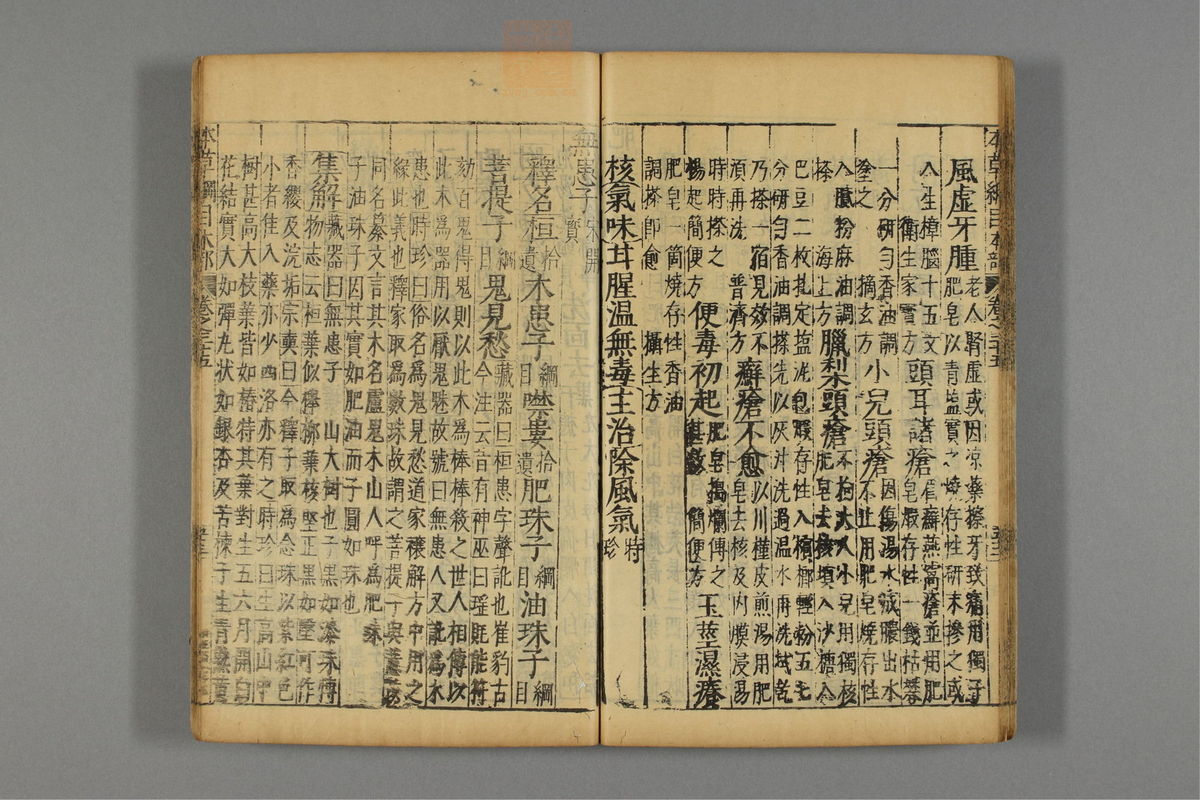 風虛牙腫老人腎虛或因凉藥擦牙致痛用獨子
肥皂以青塩實之燒存性研末摻之或
入生樟腦十五文
衛生家寶方頭耳諸瘡眉癬燕窩瘡並用肥
皂煅存性一錢枯礬
一分研勻香油調
塗之 摘玄方小兒頭瘡因傷湯水成膿出水
不止用肥皂燒存性
入膩粉麻油調
搽 海上方臘梨頭瘡不拘大人小兒用獨核
肥皂去核填入沙糖入
巴豆二枚扎定塩泥包煅存性入檳榔輕粉五七
分研勻香油調搽先以灰汁洗過温水再洗拭乾
乃搽一宿見效不
須再洗 普濟方癬瘡不愈以川槿皮煎湯用肥
皂去核及內膜浸湯
時時搽之
楊起簡便方便毒初起肥皂搗爛傅之
甚效 簡便方玉莖濕瘡
肥皂一箇燒存性香油
調搽即愈 攝生方
核氣味甘腥温無毒主治除風氣時珍
無患子宋開寶
釋名桓拾遺木患子綱目噤婁拾遺肥珠子綱目油珠子綱目
菩提子綱目鬼見愁藏器曰桓患字聲訛也崔豹古
今注云昔有神巫曰瑶㲹能符
劾百鬼得鬼則以此木爲棒棒殺之世人相傳以
此木爲器用以厭鬼魅故號曰無患人又訛爲木
患也時珍曰俗名爲鬼見愁道家禳解方中用之
緣此義也釋家取爲數珠故謂之菩提子與薏苡
同名纂文言其木名盧鬼木山人呼爲肥珠
子油珠子因其實如肥油而子圓如珠也
集解藏器曰無患子 山大樹也子黑如漆珠博
物志云桓葉似櫸柳葉核堅正黑如瑿可作
香纓及浣垢宗奭曰今釋子取爲念珠以紫紅色
小者佳入藥亦少 西洛亦有之時珍曰生高山中
樹甚高大枝葉皆如椿特其葉對生五六月開白
花結實大如彈丸狀如銀杏及苦楝子生青熟黄
本草綱目木部 卷之三十五
本草綱目木部 卷之三十五